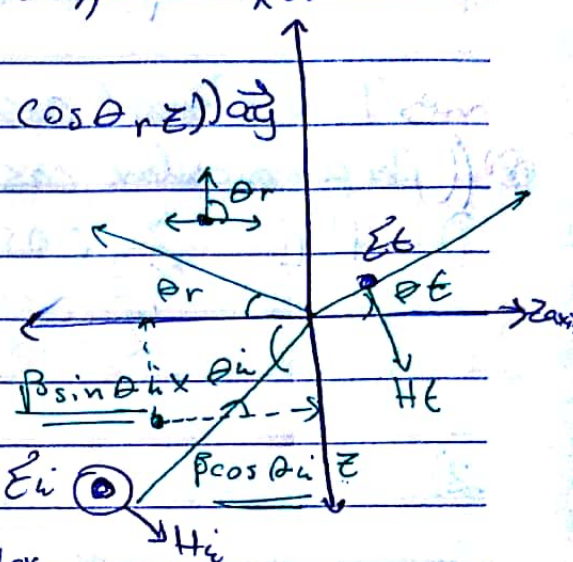 cosθr z)) ay
θr
Et
θr
θt
Zaxi
βsinθi x
θi
Ht
βcosθi z
Ei
Hi